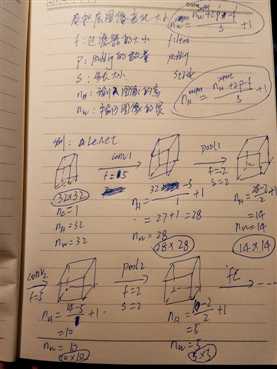 卷积层图像变化大小
f: 过滤器的大小 filter
p: padding的数量 padding
s: 步长大小 stride
n_H: 输入图像的高
n_W: 输入图像的宽
n_H = (n_H + 2p - f)/s + 1
例: LeNet
conv1
f=5
pool1
f=2
s=2
32×32
n_C=1
n_H=32
n_W=32
(32-5)/1 + 1
=27+1=28
n_W=28
28×28
+1
=14
n_W=14
14×14
conv2
f=5
pool2
f=2
s=2
fc
n_H = (14-5)/1 + 1
=10
n_W=10
10×10
n_H = (10-2)/2 + 1
=5
n_W=5
5×5